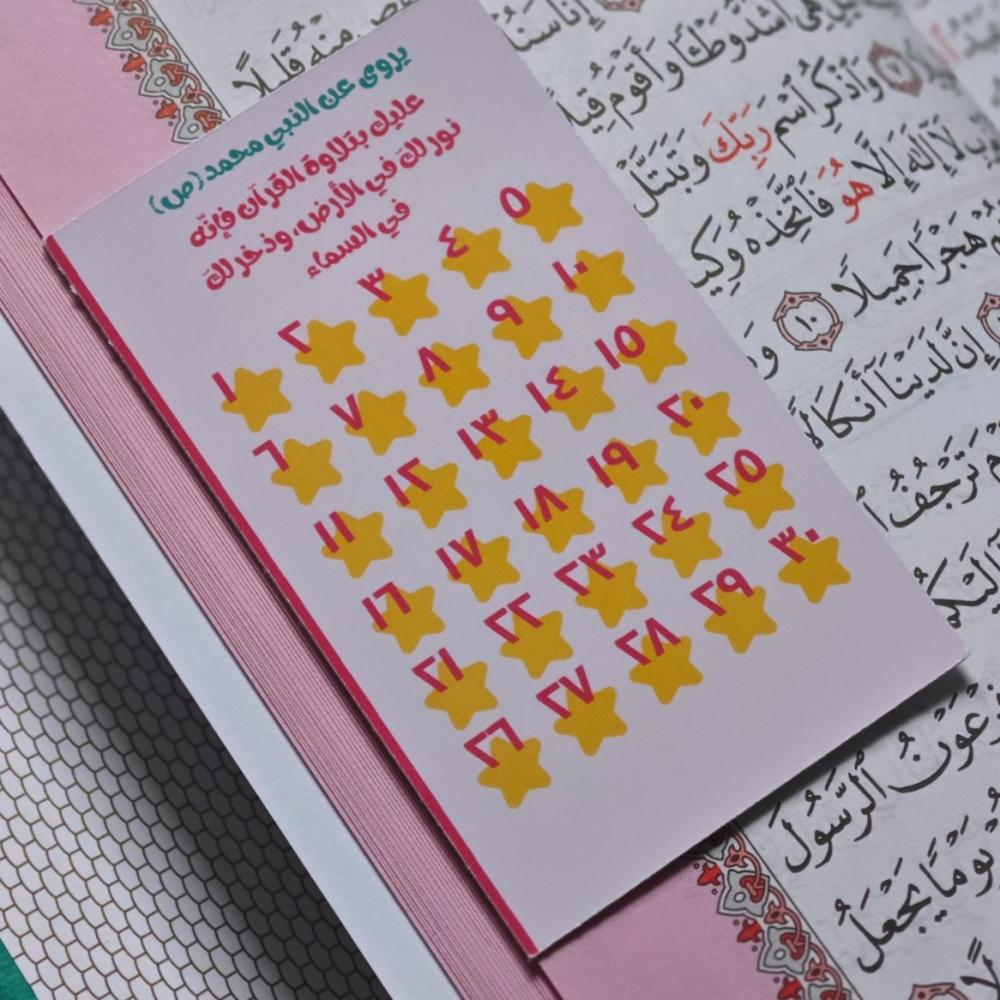 يروى عن النبي محمد (ص)
عليك بتلاوة القرآن فإنّه
نور لك في الأرض، وذخر لك
في السماء
١ ٢ ٣ ٤ ٥
٦ ٧ ٨ ٩ ١٠
١١ ١٢ ١٣ ١٤ ١٥
١٦ ١٧ ١٨ ١٩ ٢٠
٢١ ٢٢ ٢٣ ٢٤ ٢٥
٢٦ ٢٧ ٢٨ ٢٩ ٣٠
مِنْهُ قَلِيلًا
أَشَدُّ وَطْـًٔا وَأَقْوَمُ قِيلًا
وَٱذْكُرِ ٱسْمَ رَبِّكَ وَتَبَتَّلْ
لَآ إِلَٰهَ إِلَّا هُوَ فَٱتَّخِذْهُ وَكِيلًا
هَجْرًا جَمِيلًا ١٠
إِنَّ لَدَيْنَآ أَنكَالًا
تَرْجُفُ
ٱلرَّسُولَ
يَوْمًا يَجْعَلُ